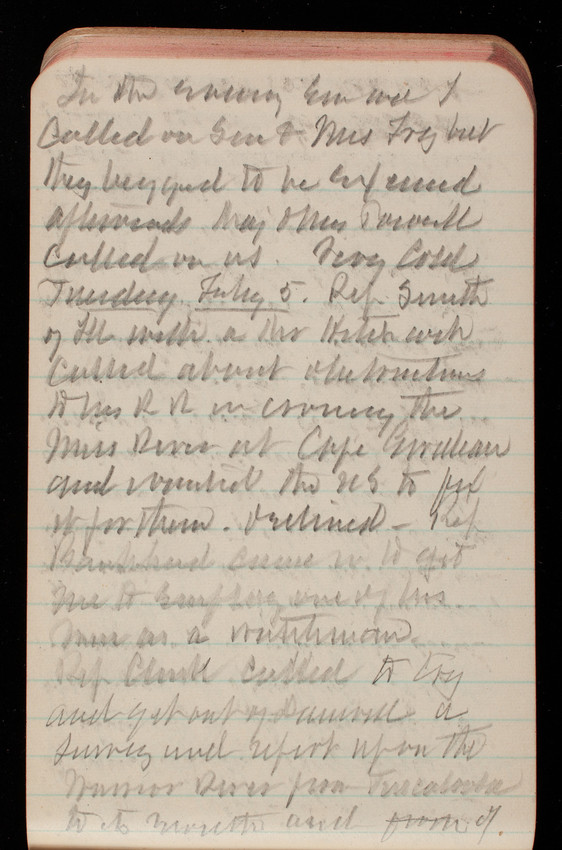 In the evening Em and I
Called on Gen & Mrs Fry but
they begged to be excused
afterwards Maj & Mrs Powell
Called on us. Very Cold
Tuesday, Feby 5. Rep Smith
of Ill with a Mr Hitchcock
Called about obstructions
to his R R in crossing the
Miss River at Cape Girardeau
and wanted the US to fix
it for them. Declined - Rep
Bankhead came in to get
me to employ one of his
men as a watchman.
Rep Clark called to try
and get out of a
survey and report upon the
Warrior River from Tuscaloosa
to its mouth and from if